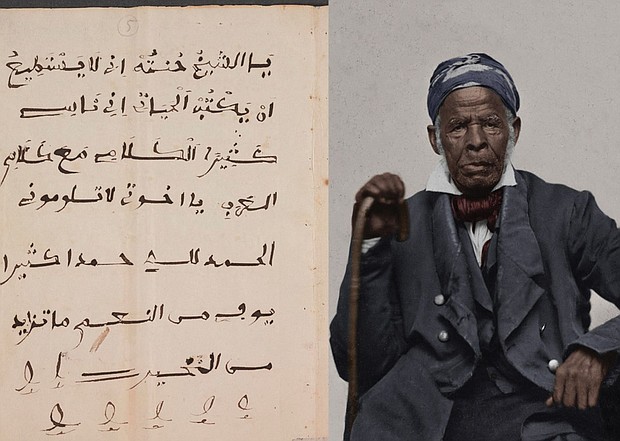 5
يا الشيخ خنته انى لا يستطيع
ان يكتب الحيات انى ناس
كثيرا الكلام مع كلام
العرب يا اخوتى لا تلومونى
الحمد لله حمدا كثيرا
يوفى من النعم ما تزايد
من الخيرات